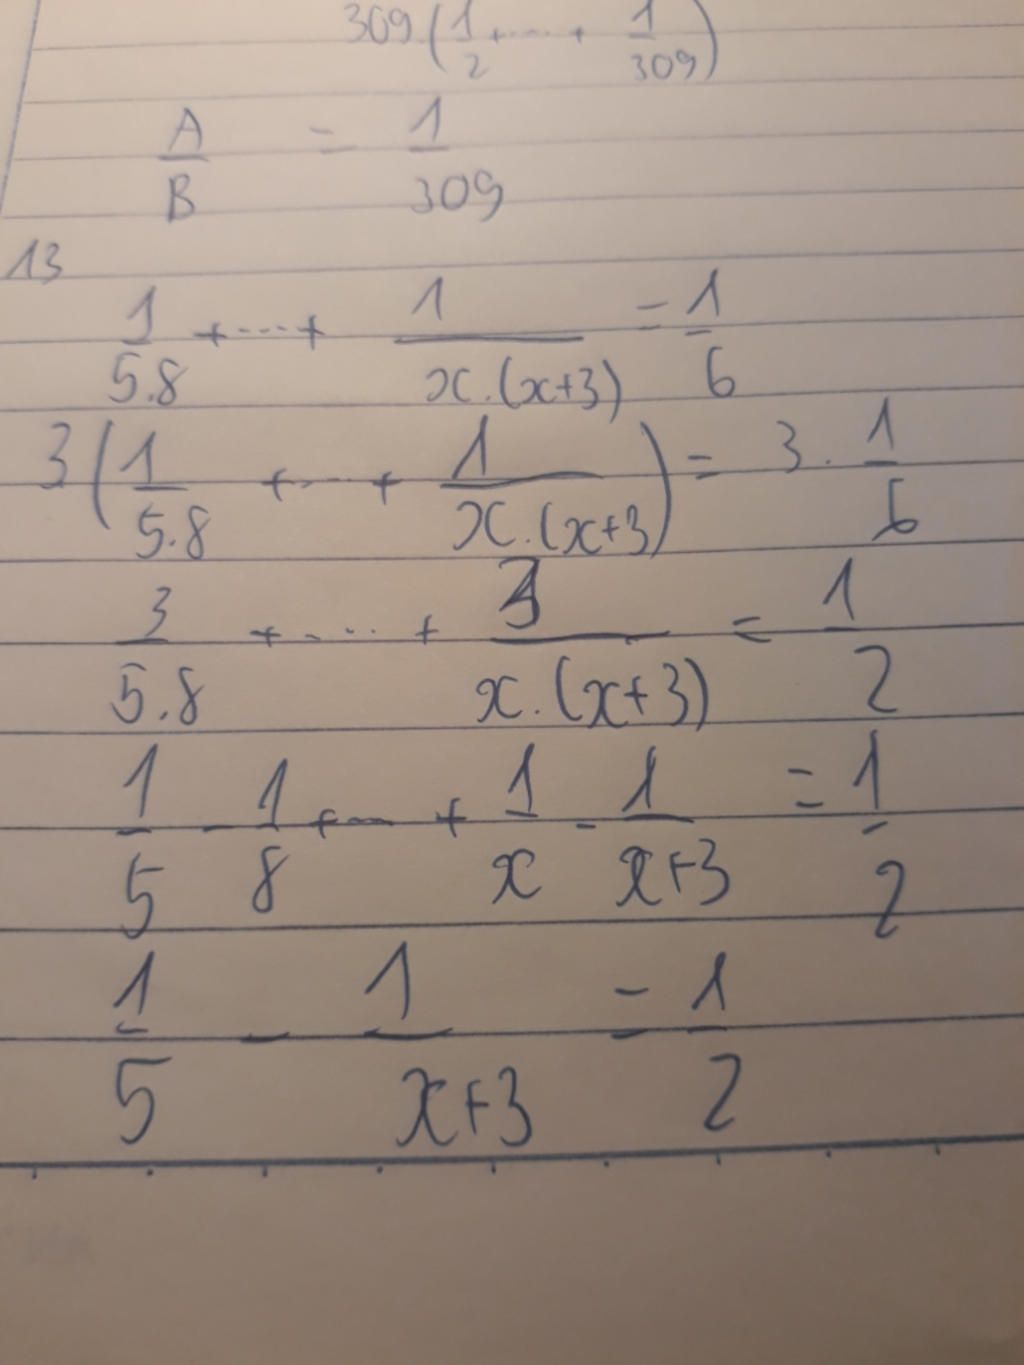 309.(1/2 + .... + 1/309)
A/B = 1/309
13
1/5.8 + ... + 1/x.(x+3) = 1/6
3(1/5.8 + ... + 1/x.(x+3)) = 3. 1/6
3/5.8 + .... + 3/x.(x+3) = 1/2
1/5 - 1/8 + ... + 1/x - 1/x+3 = 1/2
1/5 - 1/x+3 = 1/2